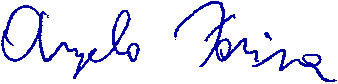 Angelo Farina